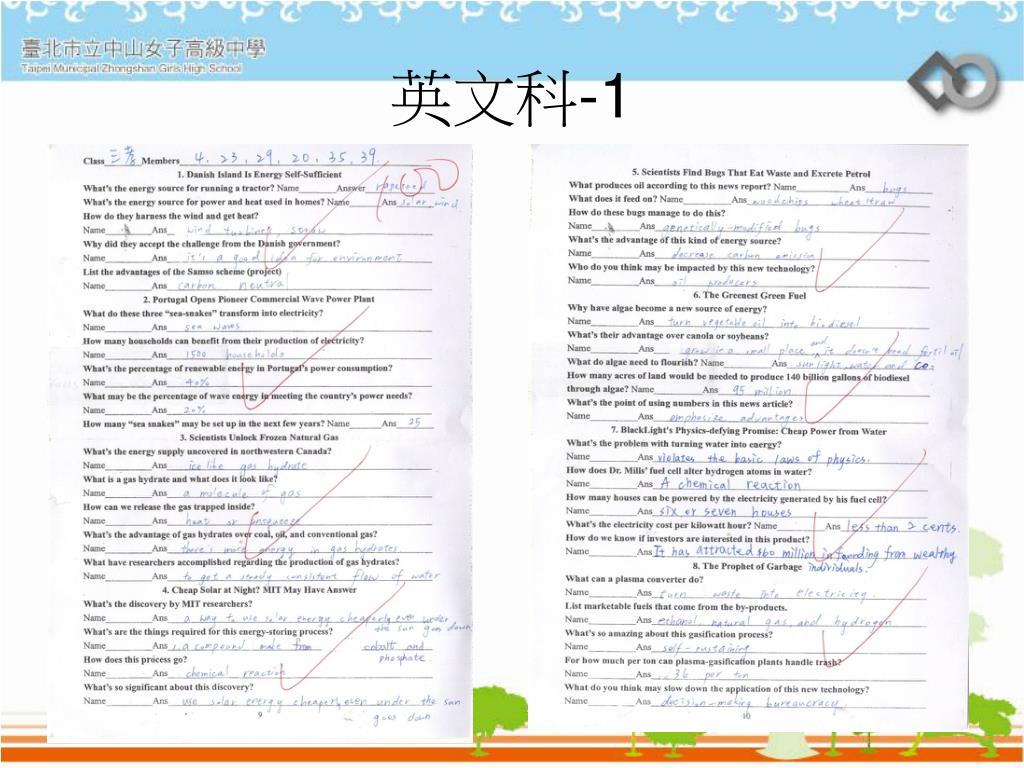 臺北市立中山女子高級中學
Taipei Municipal Zhongshan Girls High School
英文科-1
Class 三孝 Members 4, 23, 29, 20, 35, 39.
100
1. Danish Island Is Energy Self-Sufficient
What's the energy source for running a tractor? Name Answer rapeseed
What's the energy source for power and heat used in homes? Name Ans solar wind
How do they harness the wind and get heat?
Name Ans wind turbines, straw
Why did they accept the challenge from the Danish government?
Name Ans it's a good idea for environment
List the advantages of the Samso scheme (project)
Name Ans carbon neutral
2. Portugal Opens Pioneer Commercial Wave Power Plant
What do these three "sea-snakes" transform into electricity?
Name Ans sea waves
How many households can benefit from their production of electricity?
Name Ans 1500 households
What's the percentage of renewable energy in Portugal's power consumption?
Name Ans 40%
What may be the percentage of wave energy in meeting the country's power needs?
Name Ans 20%
How many "sea snakes" may be set up in the next few years? Name Ans 25
3. Scientists Unlock Frozen Natural Gas
What's the energy supply uncovered in northwestern Canada?
Name Ans icelike gas hydrate
What is a gas hydrate and what does it look like?
Name Ans a molecule of gas
How can we release the gas trapped inside?
Name Ans heat or unsqueeze
What's the advantage of gas hydrates over coal, oil, and conventional gas?
Name Ans there's more energy in gas hydrates.
What have researchers accomplished regarding the production of gas hydrates?
Name Ans to get a steady consistent flow of water
4. Cheap Solar at Night? MIT May Have Answer
What's the discovery by MIT researchers?
Name Ans a way to use solar energy cheaperly, even under the sun goes down
What's are the things required for this energy-storing process?
Name Ans a compound make from cobalt and phosphate.
How does this process go?
Name Ans chemical reaction
What's so significant about this discovery?
Name Ans use solar energy cheaper, even under the sun goes down
9
5. Scientists Find Bugs That Eat Waste and Excrete Petrol
What produces oil according to this news report? Name Ans bugs
What does it feed on? Name Ans woodchips wheat straw
How do these bugs manage to do this?
Name Ans genetically-modified bugs
What's the advantage of this kind of energy source?
Name Ans decrease carbon emission
Who do you think may be impacted by this new technology?
Name Ans oil producers
6. The Greenest Green Fuel
Why have algae become a new source of energy?
Name Ans turn vegetable oil into biodiesel
What's their advantage over canola or soybeans?
Name Ans grow in a small place and it doesn't need fertil oil
What do algae need to flourish? Name Ans sunlight, water and CO₂
How many acres of land would be needed to produce 140 billion gallons of biodiesel
through algae? Name Ans 95 million
What's the point of using numbers in this news article?
Name Ans emphasize advantages
7. BlackLight's Physics-defying Promise: Cheap Power from Water
What's the problem with turning water into energy?
Name Ans violates the basic laws of physics.
How does Dr. Mills' fuel cell alter hydrogen atoms in water?
Name Ans A chemical reaction
How many houses can be powered by the electricity generated by his fuel cell?
Name Ans six or seven houses
What's the electricity cost per kilowatt hour? Name Ans less than 2 cents.
How do we know if investors are interested in this product?
Name Ans It has attracted $60 million in funding from wealthy individuals.
8. The Prophet of Garbage
What can a plasma converter do?
Name Ans turn waste into electricity.
List marketable fuels that come from the by-products.
Name Ans ethanol, natural gas, and hydrogen
What's so amazing about this gasification process?
Name Ans self-sustaining
For how much per ton can plasma-gasification plants handle trash?
Name Ans 36 per ton
What do you think may slow down the application of this new technology?
Name Ans decision-making bureaucracy
10